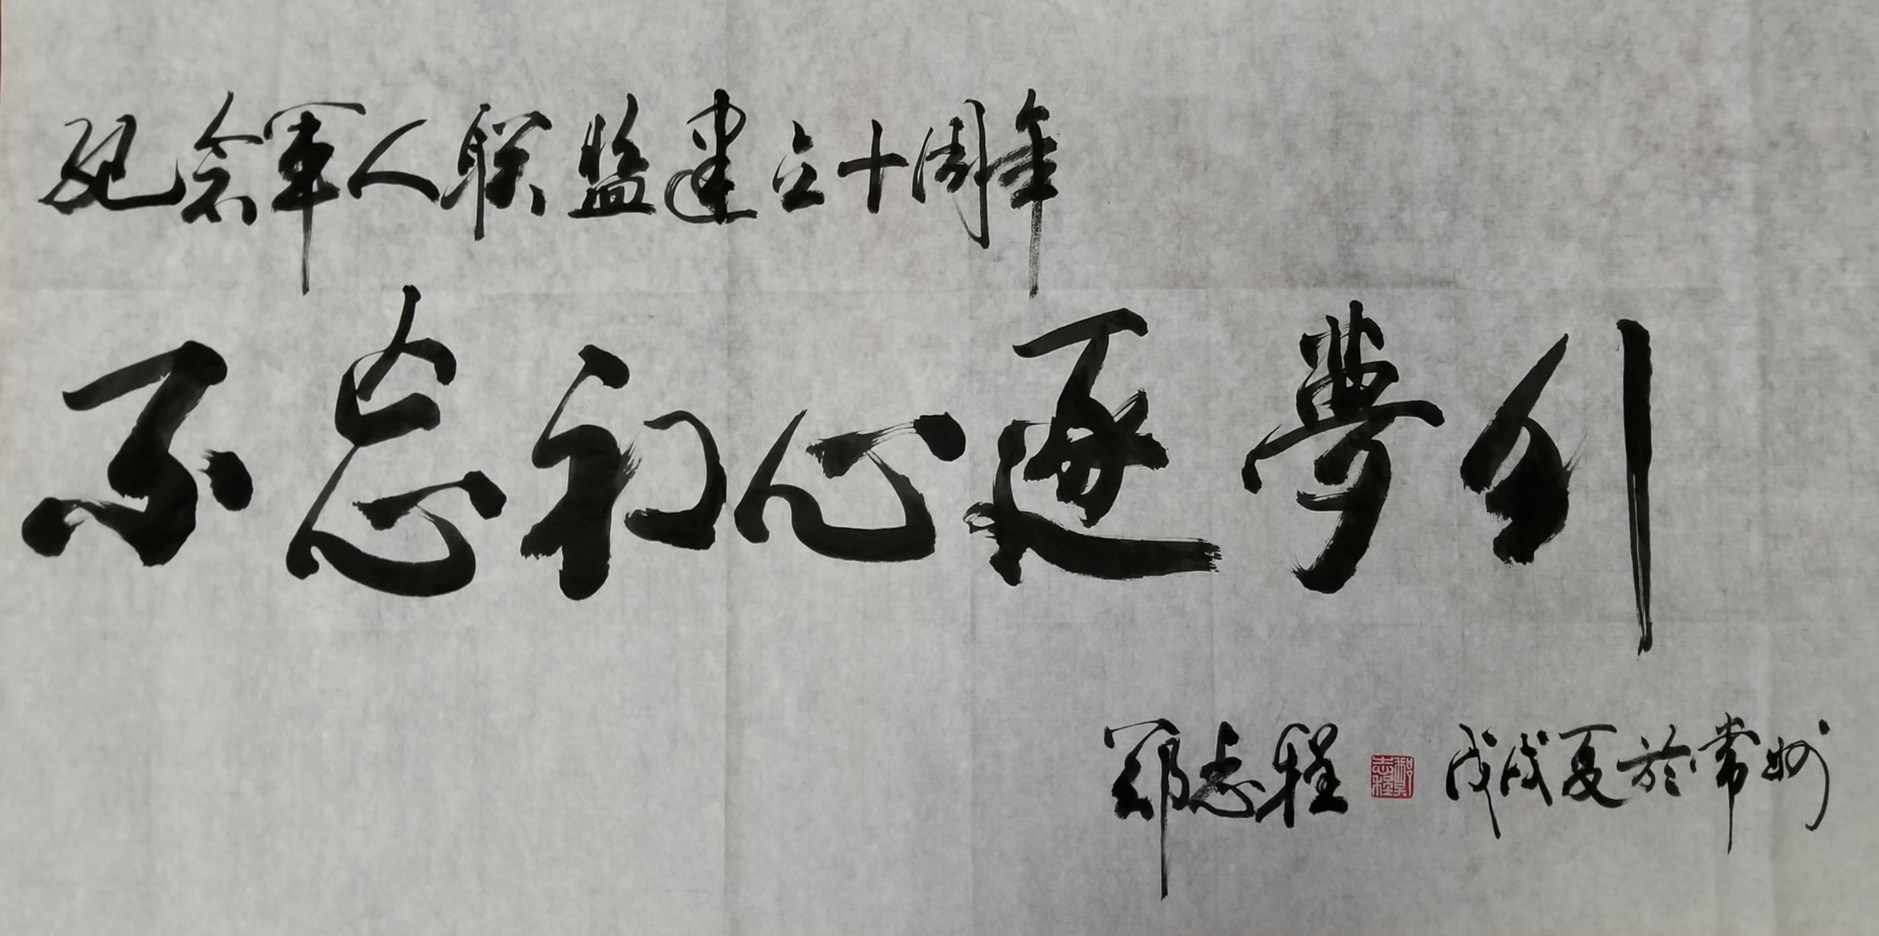 纪念軍人联盟建立十周年
不忘初心逐夢行
鄭志程 戊戌夏於常州